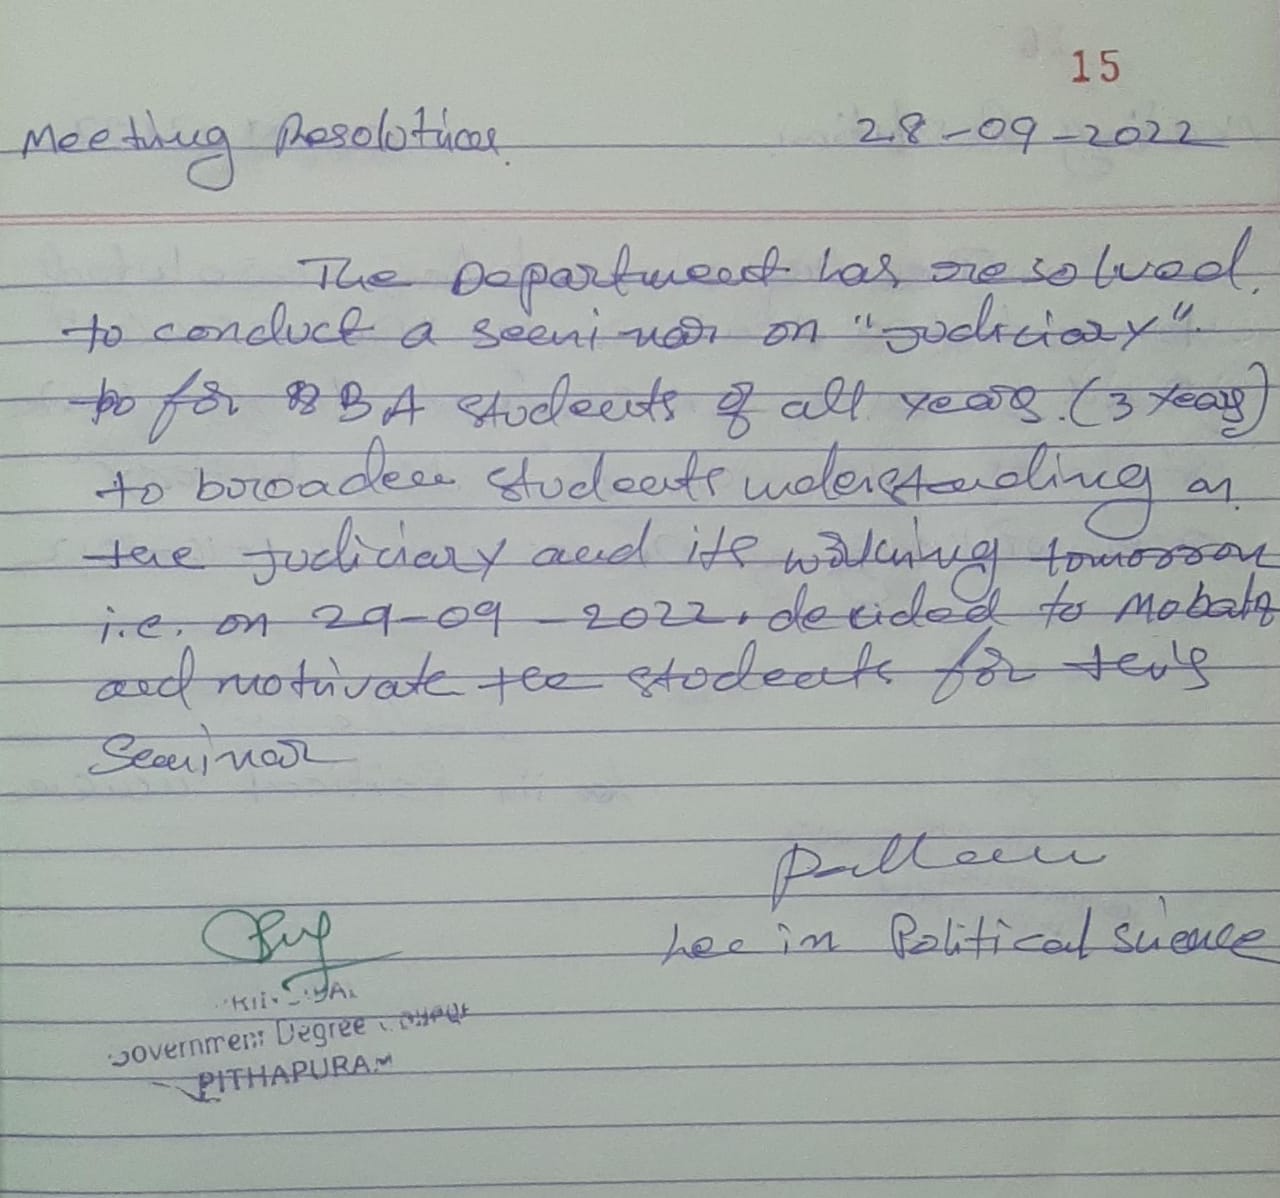 15
Meeting Resolution 28-09-2022
The Department has resolved
to conduct a seminar on "Judiciary".
for BA students of all years. (3 years)
to broaden students understanding on
the judiciary and its working tomorrow
i.e. on 29-09-2022. decided to
and motivate the students for this
Seminar
Lec in Political Science
Government Degree
PITHAPURAM